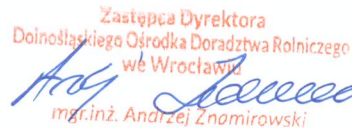 Zastępca Dyrektora
Dolnośląskiego Ośrodka Doradztwa Rolniczego
we Wrocławiu
mgr.inż. Andrzej Znomirowski